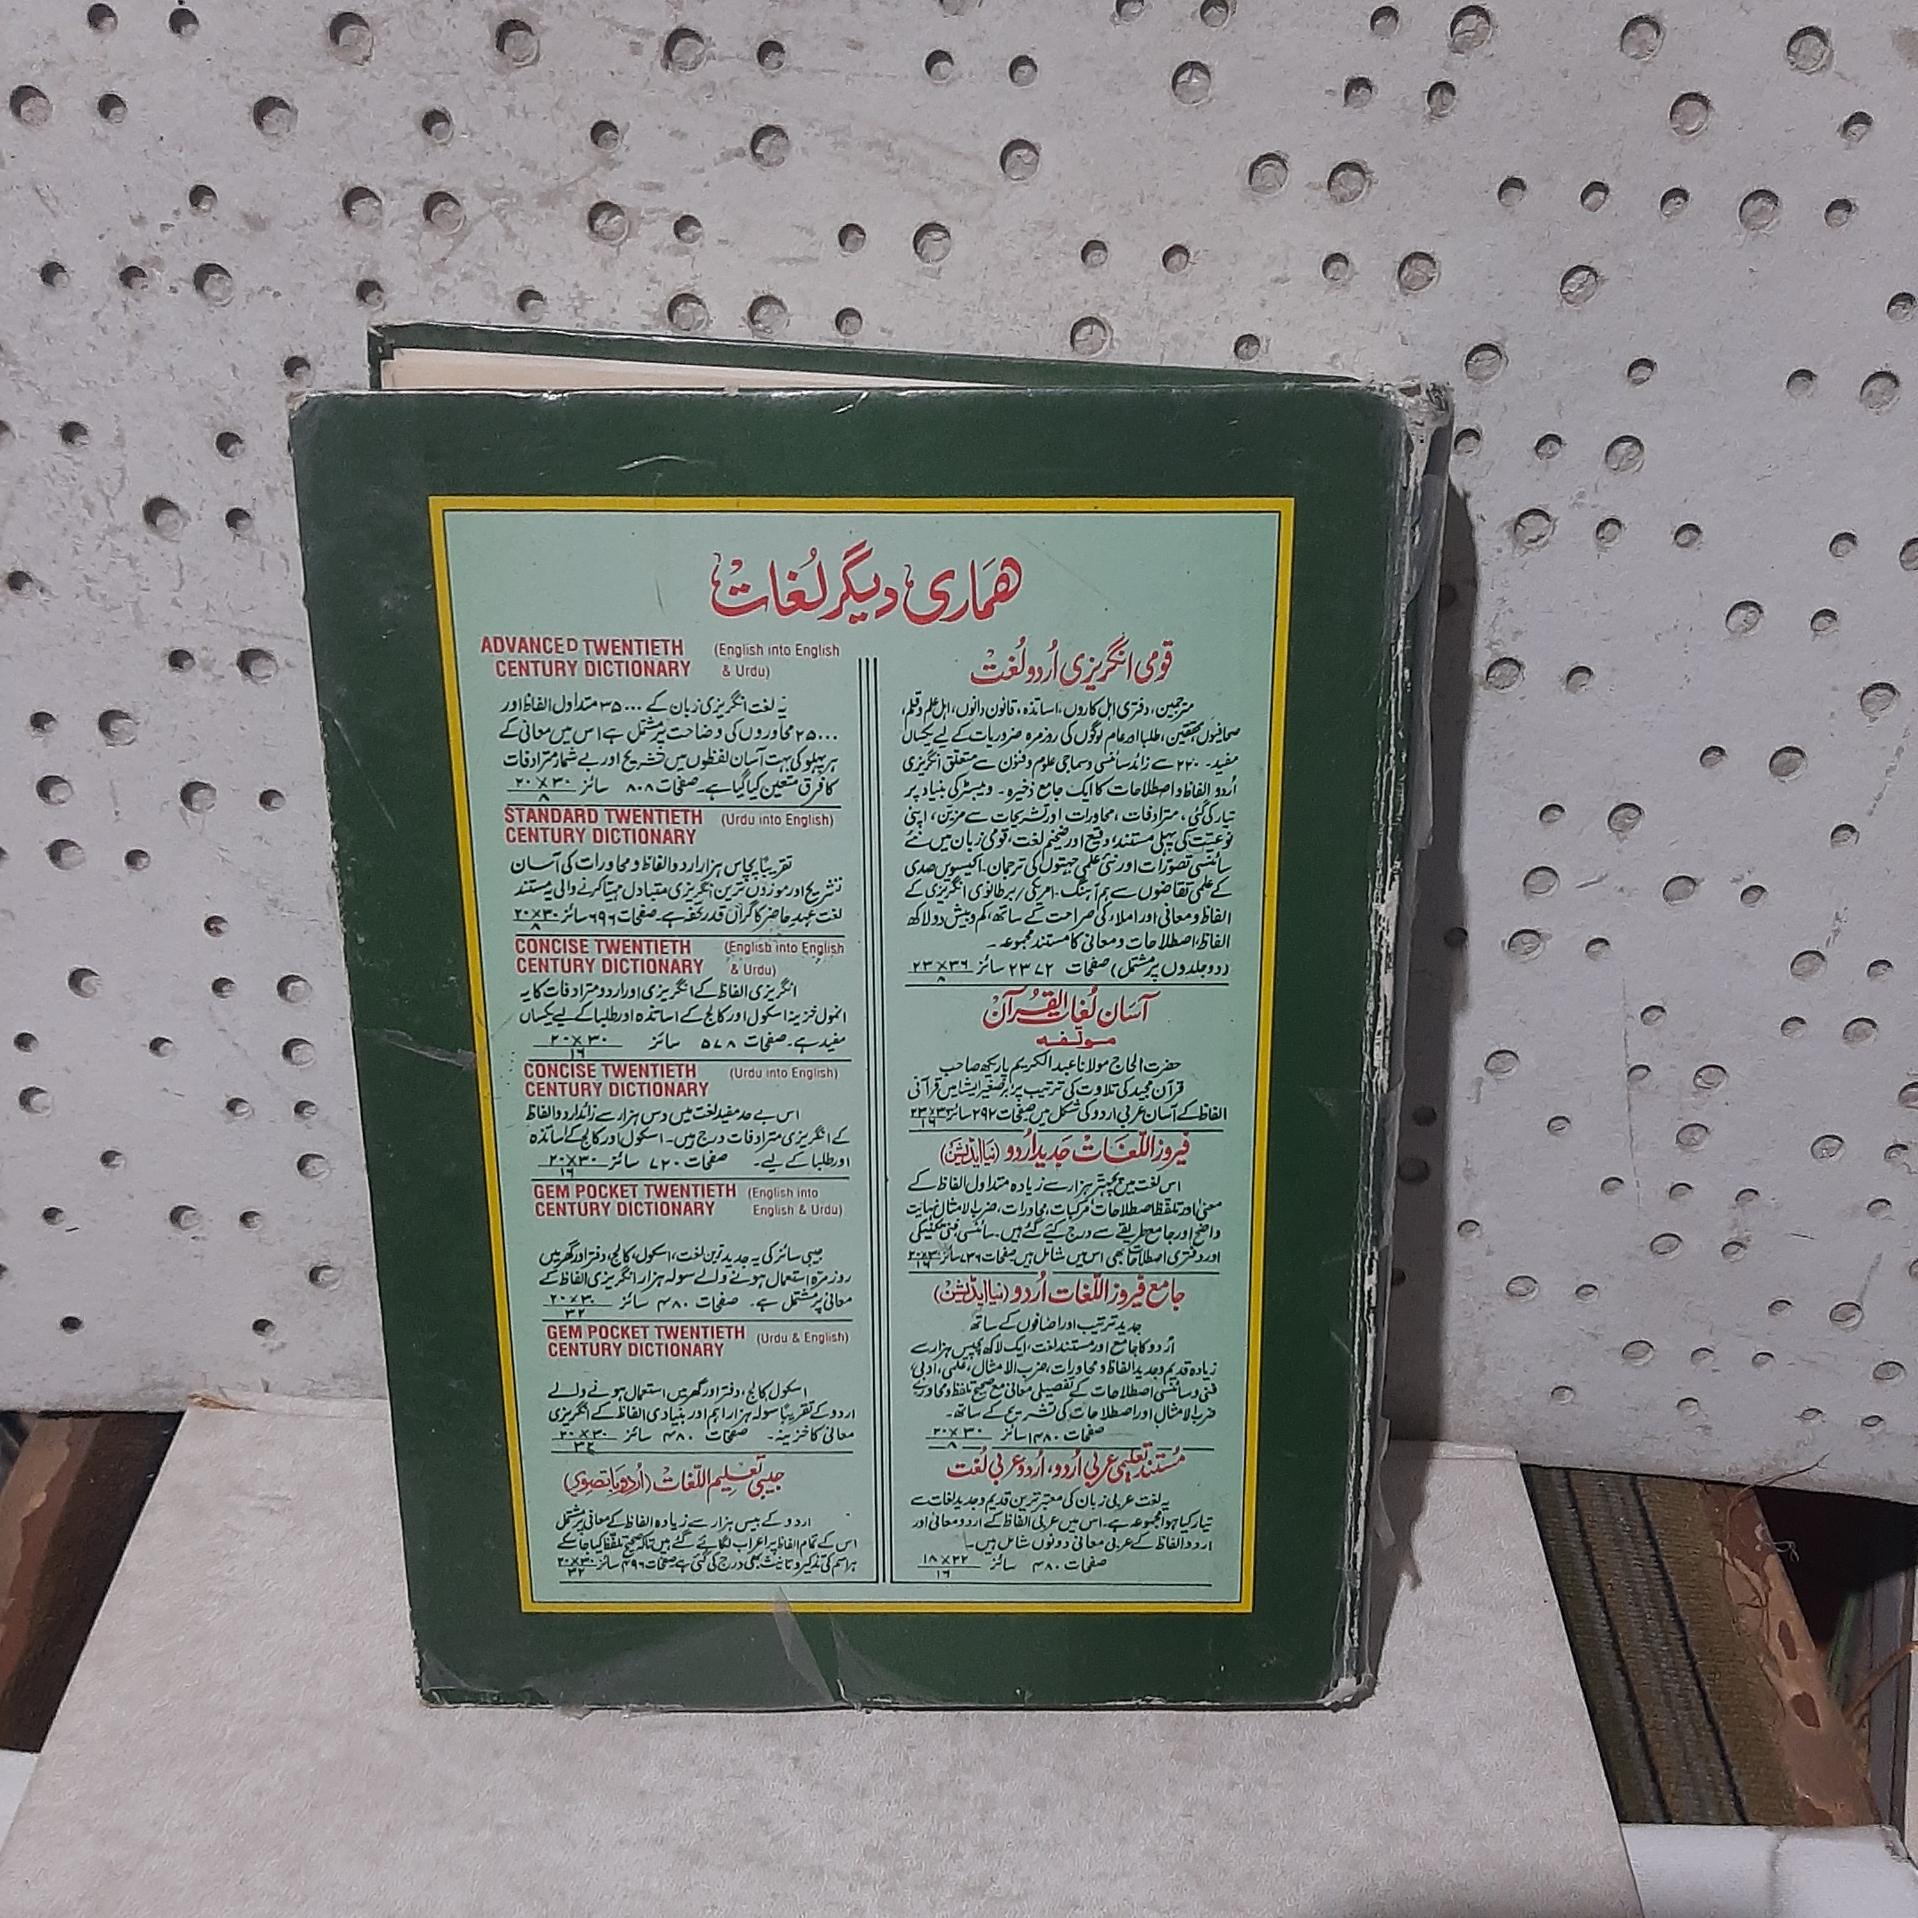 ھماری دیگر لُغات
قومی انگریزی اُردو لُغت
مترجمین، دفتری اہل کاروں، اساتذہ، قانون دانوں، اہل علم و قلم،
صحافیوں، محققین، طلبا اور عام لوگوں کی روزمرہ ضروریات کے لیے یکساں
مفید۔ ۲۲۰ سے زائد سائنسی و سماجی علوم و فنون سے متعلق انگریزی
اُردو الفاظ و اصطلاحات کا ایک جامع ذخیرہ۔ ویبسٹر کی بنیاد پر
تیار کی گئی، مترادفات، محاورات اور تشریحات سے مزین، اپنی
نوعیت کی پہلی مستند، وقیع اور ضخیم لغت، قومی زبان میں نئے
سائنسی تصوّرات اور نئی علمی جہتوں کی ترجمان۔ اکیسویں صدی
کے علمی تقاضوں سے ہم آہنگ۔ امریکی / برطانوی انگریزی کے
الفاظ و معانی اور املاء کی صراحت کے ساتھ، کم و بیش دو لاکھ
الفاظ، اصطلاحات و معانی کا مستند مجموعہ۔
(دو جلدوں پر مشتمل) صفحات ۲۳۷۲ سائز ۲۳×۳۶/۸
آسان لُغاتُ القُرآن
مولفہ
حضرت الحاج مولانا عبد الکریم پاریکھ صاحب
قرآن مجید کی تلاوت کی ترتیب پر برصغیر ایشا میں قرآنی
الفاظ کے آسان عربی اردو کی شکل میں صفحات ۲۹۲ سائز ۲۳×۳۶/۱۶
فیروز اللّغات جدید اُردو (نیا ایڈیشن)
اس لغت میں پچہتّر ہزار سے زیادہ متداول الفاظ کے
معنی اور تلفظ، اصطلاحات، مُرکبات، محاورات، ضرب الامثال نہایت
واضح اور جامع طریقے سے درج کیے گئے ہیں۔ سائنسی، فنی، تکنیکی
اور دفتری اصطلاحات بھی اس میں شامل ہیں۔ صفحات ۷۳۶ سائز ۲۰×۳۰/۱۶
جامع فیروز اللّغات اُردو (نیا ایڈیشن)
جدید ترتیب اور اضافوں کے ساتھ
اُردو کا جامع اور مستند لغت، ایک لاکھ پچیس ہزار سے
زیادہ قدیم و جدید الفاظ و محاورات، ضرب الامثال، علمی، ادبی،
فنی و سائنسی اصطلاحات کے تفصیلی معانی مع صحیح تلفظ و محاورے
ضرب الامثال اور اصطلاحات کی تشریح کے ساتھ۔
صفحات ۱۴۸۰ سائز ۲۰×۳۰/۸
مُستند تعلیمی عربی اُردو، اُردو عربی لُغت
یہ لغت عربی زبان کی معتبر ترین قدیم و جدید لغات سے
تیار کیا ہوا مجموعہ ہے۔ اس میں عربی الفاظ کے اردو معانی اور
اردو الفاظ کے عربی معانی دونوں شامل ہیں۔
صفحات ۴۸۰ سائز ۱۸×۲۲/۱۶
ADVANCED TWENTIETH (English into English
CENTURY DICTIONARY & Urdu)
یہ لغت انگریزی زبان کے ۳۵۰۰۰ متداول الفاظ اور
۲۵۰۰۰ محاوروں کی وضاحت پر مشتمل ہے اس میں معانی کے
ہر پہلو کی بہت آسان لفظوں میں تشریح اور بے شمار مترادفات
کا فرق متعین کیا گیا ہے۔ صفحات ۸۰۸ سائز ۲۰×۳۰/۸
STANDARD TWENTIETH (Urdu into English)
CENTURY DICTIONARY
تقریباً پچاس ہزار اردو الفاظ و محاورات کی آسان
تشریح اور موزوں ترین انگریزی متبادل مہیا کرنے والی یہ مستند
لغت عہد حاضر کا گراں قدر تحفہ ہے۔ صفحات ۶۹۶ سائز ۲۰×۳۰/۸
CONCISE TWENTIETH (English into English
CENTURY DICTIONARY & Urdu)
انگریزی الفاظ کے انگریزی اور اردو مترادفات کا یہ
انمول خزینہ اسکول اور کالج کے اساتذہ اور طلبا کے لیے یکساں
مفید ہے۔ صفحات ۵۷۸ سائز ۲۰×۳۰/۱۶
CONCISE TWENTIETH (Urdu into English)
CENTURY DICTIONARY
اس بے حد مفید لغت میں دس ہزار سے زائد اردو الفاظ
کے انگریزی مترادفات درج ہیں۔ اسکول اور کالج کے اساتذہ
اور طلبا کے لیے۔ صفحات ۷۲۰ سائز ۲۰×۳۰/۱۶
GEM POCKET TWENTIETH (English into
CENTURY DICTIONARY English & Urdu)
جیبی سائز کی یہ جدید ترین لغت، اسکول، کالج، دفتر اور گھر میں
روزمرہ استعمال ہونے والے سولہ ہزار انگریزی الفاظ کے
معانی پر مشتمل ہے۔ صفحات ۴۸۰ سائز ۲۰×۳۰/۳۲
GEM POCKET TWENTIETH (Urdu & English)
CENTURY DICTIONARY
اسکول کالج، دفتر اور گھر میں استعمال ہونے والے
اردو کے تقریباً سولہ ہزار اہم اور بنیادی الفاظ کے انگریزی
معانی کا خزینہ۔ صفحات ۴۸۰ سائز ۲۰×۳۰/۳۲
جیبی تعلیم اللّغات (اُردو باتصویر)
اردو کے بیس ہزار سے زیادہ الفاظ کے معانی پر مشتمل
اس کے تمام الفاظ پر اعراب لگائے گئے ہیں تاکہ صحیح تلفظ کیا جا سکے
ہر اسم کی تذکیر و تانیث بھی درج کی گئی ہے صفحات ۴۹۶ سائز ۲۰×۳۰/۳۲